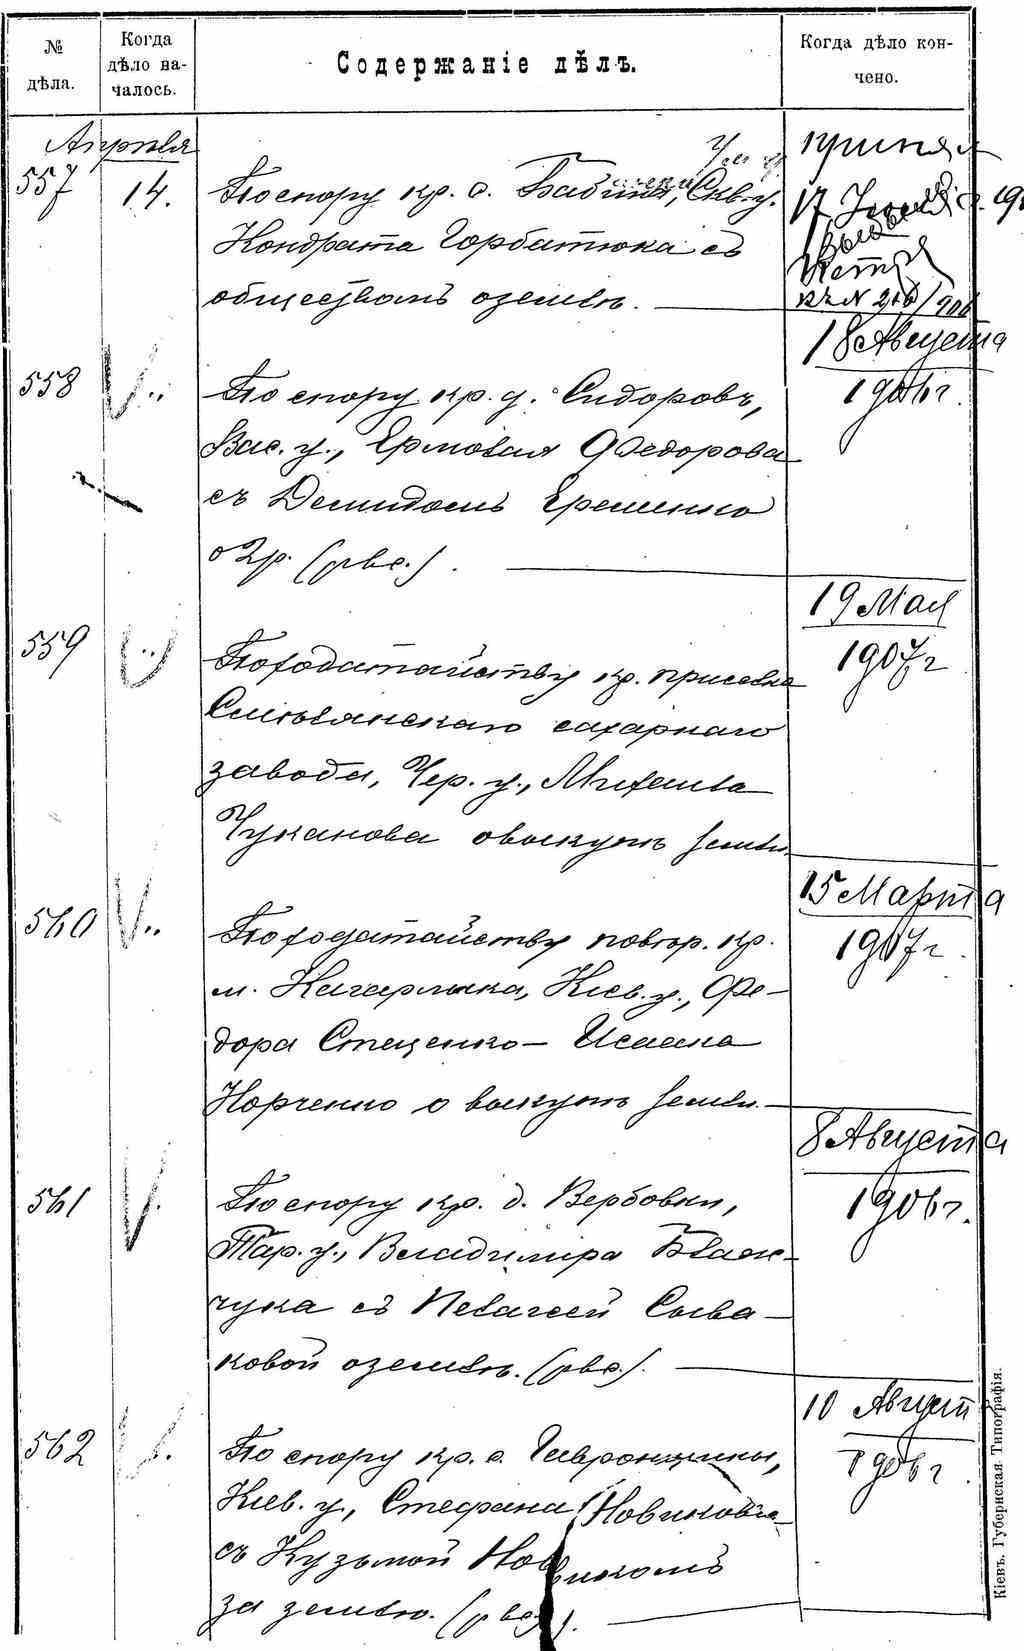 № дѣла.
Когда дѣло началось.
Содержаніе дѣлъ.
Когда дѣло кончено.
Апрѣля
557
14.
По спору кр. с. Бабина, Скв. у.
Кондрата Горбатюка съ
обществомъ о землѣ.
17
къ № 216/906
558
По спору кр. д. Сидоровъ,
Вас. у., Ермолая Федорова
съ Демидомъ Еременко
о 2р. (рвс.).
18 Августа
1906 г.
559
По ходатайству кр. присел.
Смѣлянскаго сахарнаго
завода, Чер. у., Михаила
Чуканова о выкупѣ земли.
19 Мая
1907 г
560
По ходатайству повѣр. кр.
м. Кагарлыка, Кіев. у., Фе-
дора Стеценко – Исаака
Норченко о выкупѣ земли.
15 Марта
1907 г.
561
По спору кр. д. Вербовки,
Тар. у., Владимира Блаж-
чука съ Пелагеей Сыва-
ковой о землѣ. (рвс.).
8 Августа
1906 г.
562
По спору кр. с. Гавронщины,
Кіев. у., Стефана Новикова
съ Кузьмой Новикомъ
за землю. (рвс.).
10 Август
1906 г.
Кіевъ. Губернская Типографія.